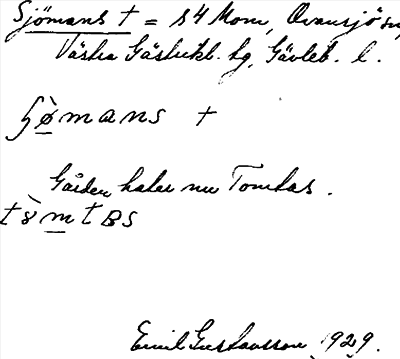 Sjömans † = s4 Mom, Ovansjö sn,
Västra Gästrikl. hg, Gävleb. l.
ʃø̀mans †
Gården kallas nu Tomtas.
Emil Gustavsson 1929.